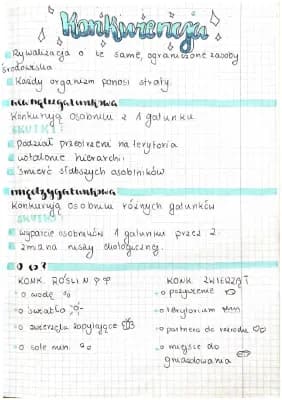 Konkurencja
Rywalizacja o te same, ograniczone zasoby
środowiska
Każdy organizm ponosi straty.
wewnątrzgatunkowa
Konkurują osobniki z 1 gatunku
SKUTKI:
podział przestrzeni na terytoria
ustalenie hierarchii
śmierć słabszych osobników
międzygatunkowa
Konkurują osobniki różnych gatunków
SKUTKI:
wyparcie osobników 1 gatunku przez 2.
zmiana niszy ekologicznej.
O co?
KONK. ROŚLIN KONK. ZWIERZĄT
o wodę o pożywienie
o światło o terytorium
o zwierzęta zapylające o partnera do rozrodu
o sole min. o miejsce do
gniazdowania